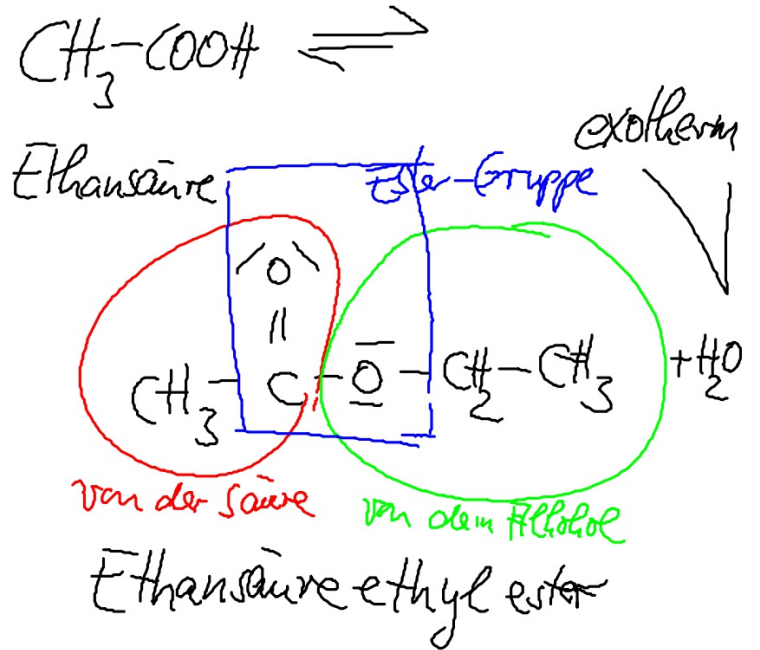 CH₃-COOH ⇌
exotherm
Ethansäure
Ester-Gruppe
O
||
CH₃-C-O-CH₂-CH₃ +H₂O
von der Säure
von dem Alkohol
Ethansäureethylester